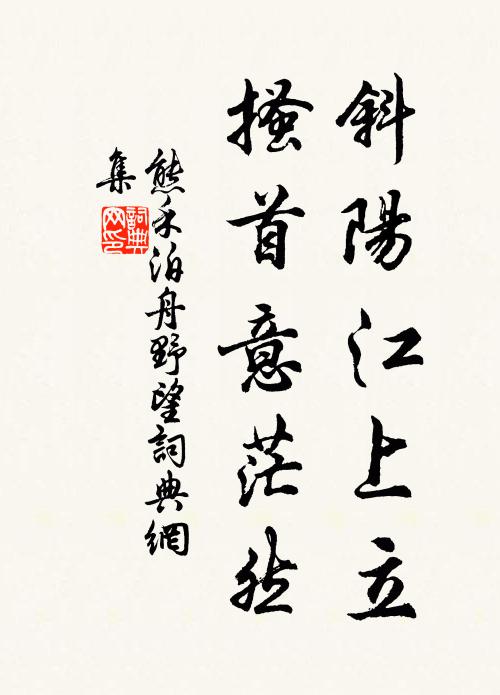 斜陽江上立
搔首意茫然
熊禾泊舟野望詞典網
集
詞典網印